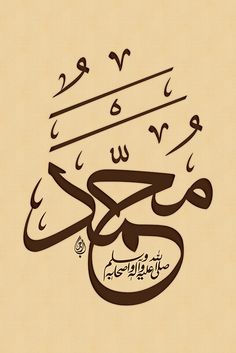 محمد
صلى الله عليه وآله وأصحابه وسلم